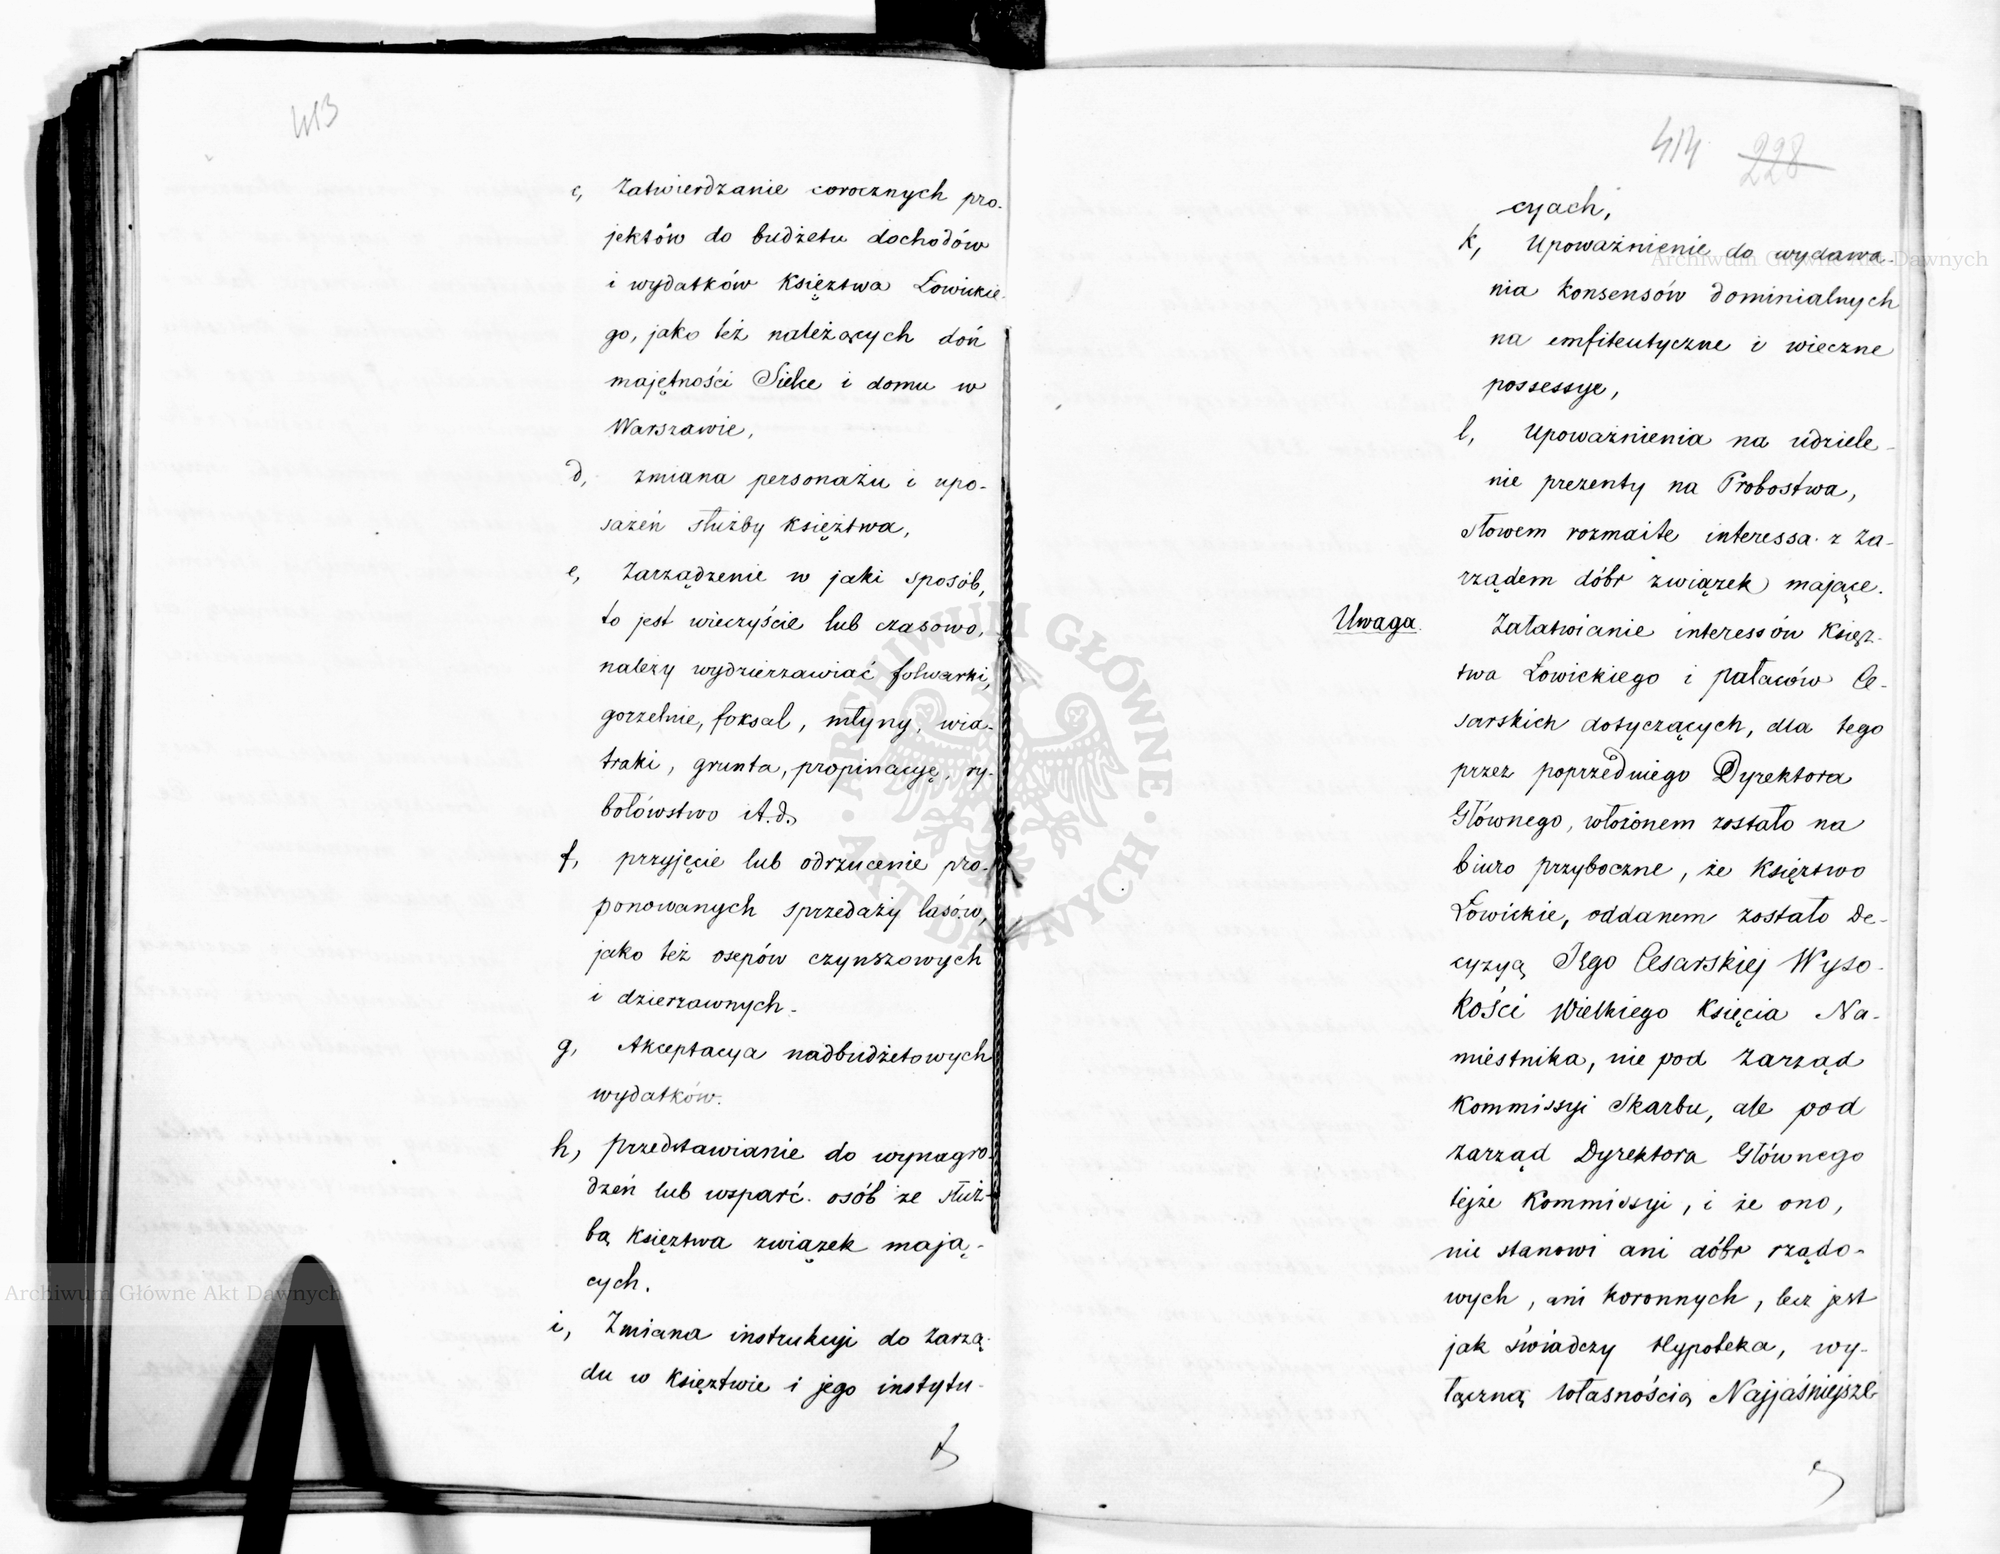 413
c, Zatwierdzanie corocznych pro-
jektów do budżetu dochodów
i wydatków Księztwa Łowickie-
go, jako też należących doń
majętności Sielce i domu w
Warszawie,
d, zmiana personażu i upo-
sażeń służby księztwa,
e, Zarządzenie w jaki sposób,
to jest wieczyście lub czasowo,
należy wydzierżawiać folwarki,
gorzelnie, foksal, młyny, wia-
traki, grunta, propinacyę, ry-
bołówstwo i t.d.
f, przyjęcie lub odrzucenie pro-
ponowanych sprzedaży lasów,
jako też osepów czynszowych
i dzierżawnych.
g, Akceptacya nadbudżetowych
wydatków.
h, przedstawianie do wynagro-
dzeń lub wsparć osób ze służ-
bą księztwa związek mają-
cych.
i, Zmiana instrukcyi do zarzą-
du w księztwie i jego instytu-
414 228
cyach,
k, Upoważnienie do wydawa-
nia konsensów dominialnych
na emfiteutyczne i wieczne
possessye,
l, Upoważnienia na udziele-
nie prezenty na Probostwa,
słowem rozmaite interessa z za-
rządem dóbr związek mające.
Uwaga. Załatwianie interessów Księz-
twa Łowickiego i pałaców Ce-
sarskich dotyczących, dla tego
przez poprzedniego Dyrektora
Głównego, włożonem zostało na
biuro przyboczne, że Księztwo
Łowickie, oddanem zostało de-
cyzyą Jego Cesarskiej Wyso-
kości Wielkiego Księcia Na-
miestnika, nie pod zarząd
Kommissyi Skarbu, ale pod
zarząd Dyrektora Głównego
tejże Kommissyi, i że ono,
nie stanowi ani dóbr rządo-
wych, ani koronnych, lecz jest
jak świadczy Hypoteka, wy-
łączną własnością Najjaśniejsze-
ARCHIWUM GŁÓWNE
AKT DAWNYCH
Archiwum Główne Akt Dawnych
Archiwum Główne Akt Dawnych